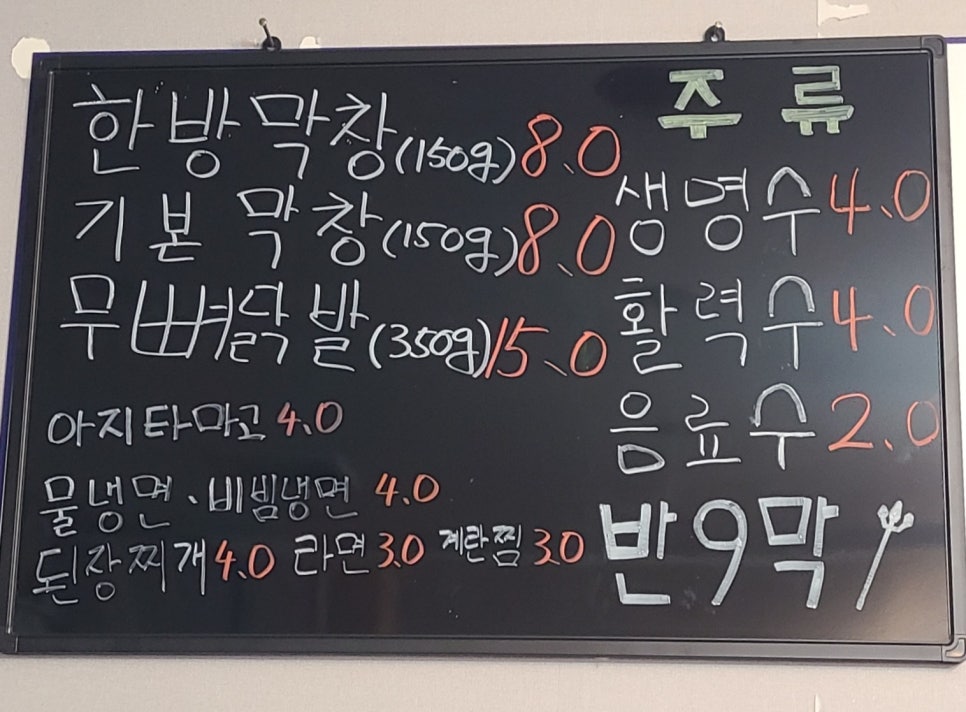 한방막창(150g) 8.0
기본 막창(150g) 8.0
무뼈닭발(350g) 15.0
아지타마고 4.0
물냉면、비빔냉면 4.0
된장찌개 4.0 라면 3.0 계란찜 3.0
주류
생명수 4.0
활력수 4.0
음료수 2.0
반9막